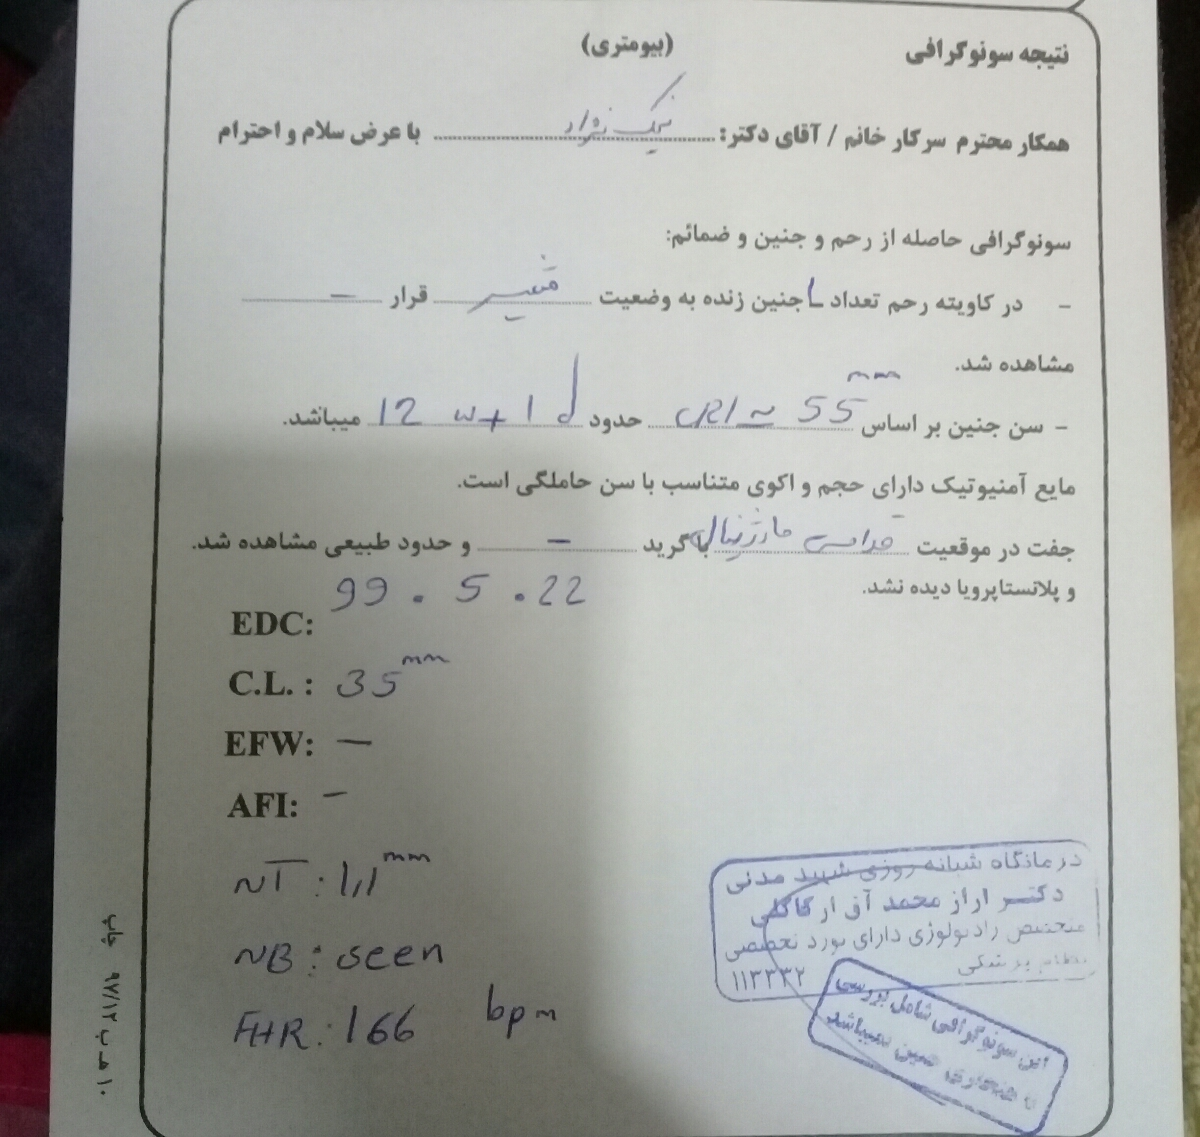 نتیجه سونوگرافی (بیومتری)
همکار محترم سرکار خانم / آقای دکتر: نیک نژاد با عرض سلام و احترام
سونوگرافی حاصله از رحم و جنین و ضمائم:
- در کاویته رحم تعداد 1 جنین زنده به وضعیت متغییر قرار -
مشاهده شد.
- سن جنین بر اساس CRL ~ 55 mm حدود 12 w + 1 d میباشد.
مایع آمنیوتیک دارای حجم و اکوی متناسب با سن حاملگی است.
جفت در موقعیت قدامی مارژینال با گرید - و حدود طبیعی مشاهده شد.
و پلانستاپرویا دیده نشد.
EDC: 99 . 5 . 22
C.L. : 35 mm
EFW: -
AFI: -
NT : 1,1 mm
NB : seen
FHR : 166 bpm
درمانگاه شبانه روزی شهید مدنی
دکتر اراز محمد آق ارکاکلی
متخصص رادیولوژی دارای بورد تخصصی
نظام پزشکی
۱۱۳۳۳۲
این سونوگرافی شامل بررسی
نا هنجاری جنین نمیباشد
۱۰ هـ ب ۹۷/۱۲ چاپ